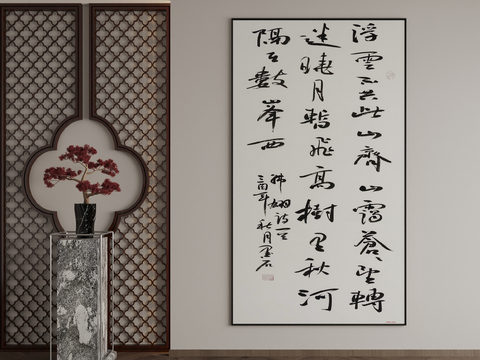 浮雲不共此山齊山靄蒼蒼望轉
迷曉月暫飛高樹里秋河
隔在數峯西
韓翃詩一首
年秋月墨石